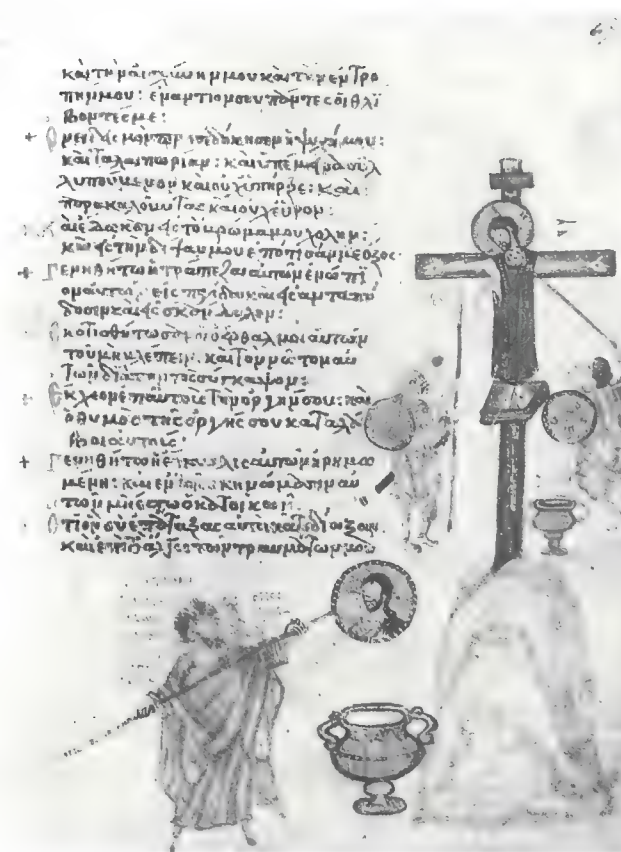 καὶ τὴν αἰσχύνην μου καὶ τὴν ἐντρο
πήν μου: ἐναντίον σου πάντες οἱ θλί
βοντές με:
+ Ὀνειδισμὸν προσεδόκησεν ἡ ψυχή μου:
καὶ ταλαιπωρίαν: καὶ ὑπέμεινα συλ
λυπούμενον καὶ οὐχ ὑπῆρξε: καὶ
παρακαλοῦντας καὶ οὐχ εὗρον:
Καὶ ἔδωκαν εἰς τὸ βρῶμά μου χολήν:
καὶ εἰς τὴν δίψαν μου ἐπότισάν με ὄξος
+ Γενηθήτω ἡ τράπεζα αὐτῶν ἐνώπι
ον αὐτῶν εἰς παγίδα καὶ εἰς ἀνταπό
δοσιν καὶ εἰς σκάνδαλον:
Σκοτισθήτωσαν οἱ ὀφθαλμοὶ αὐτῶν
τοῦ μὴ βλέπειν καὶ τὸν νῶτον αὐ
τῶν διὰ παντὸς σύγκαμψον:
+ Ἔκχεον ἐπ αὐτοὺς τὴν ὀργήν σου: καὶ
ὁ θυμὸς τῆς ὀργῆς σου καταλά
βοι αὐτούς:
+ Γενηθήτω ἡ ἔπαυλις αὐτῶν ἠρημω
μένη: καὶ ἐν τοῖς σκηνώμασιν αὐ
τῶν μὴ ἔστω ὁ κατοικῶν:
Ὅτι ὃν σὺ ἐπάταξας αὐτοὶ κατεδίωξαν
καὶ ἐπὶ τὸ ἄλγος τῶν τραυμάτων μου